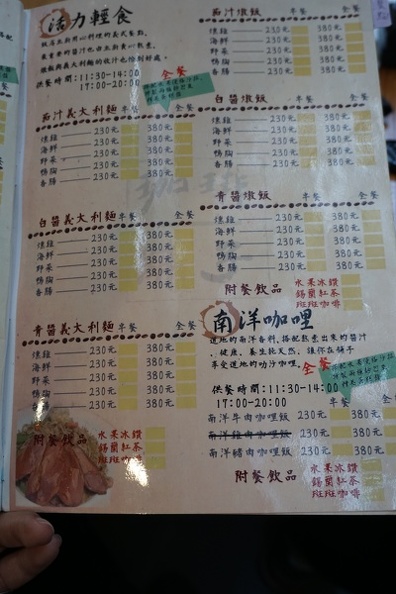 活力輕食
供餐時間:11:30-14:00
17:00-20:00
全餐
茄汁義大利麵 單餐 全餐
燻雞 230元 380元
海鮮 230元 380元
野菜 230元 380元
鴨胸 230元 380元
香腸 230元 380元
白醬義大利麵 單餐 全餐
燻雞 230元 380元
海鮮 230元 380元
野菜 230元 380元
鴨胸 230元 380元
香腸 230元 380元
青醬義大利麵 單餐 全餐
燻雞 230元 380元
海鮮 230元 380元
野菜 230元 380元
鴨胸 230元 380元
香腸 230元 380元
附餐飲品
水果冰鑽
錫蘭紅茶
斑斑咖啡
茄汁燉飯 單餐 全餐
燻雞 230元 380元
海鮮 230元 380元
野菜 230元 380元
鴨胸 230元 380元
香腸 230元 380元
白醬燉飯 單餐 全餐
燻雞 230元 380元
海鮮 230元 380元
野菜 230元 380元
鴨胸 230元 380元
香腸 230元 380元
青醬燉飯 單餐 全餐
燻雞 230元 380元
海鮮 230元 380元
野菜 230元 380元
鴨胸 230元 380元
香腸 230元 380元
附餐飲品
水果冰鑽
錫蘭紅茶
斑斑咖啡
南洋咖哩
道地的南洋香料,搭配熬煮出來的醬汁
全餐
供餐時間:11:30-14:00
17:00-20:00
單餐 全餐
南洋牛肉咖哩飯 230元 380元
南洋雞肉咖哩飯 230元 380元
南洋豬肉咖哩飯 230元 380元
附餐飲品
水果冰鑽
錫蘭紅茶
斑斑咖啡